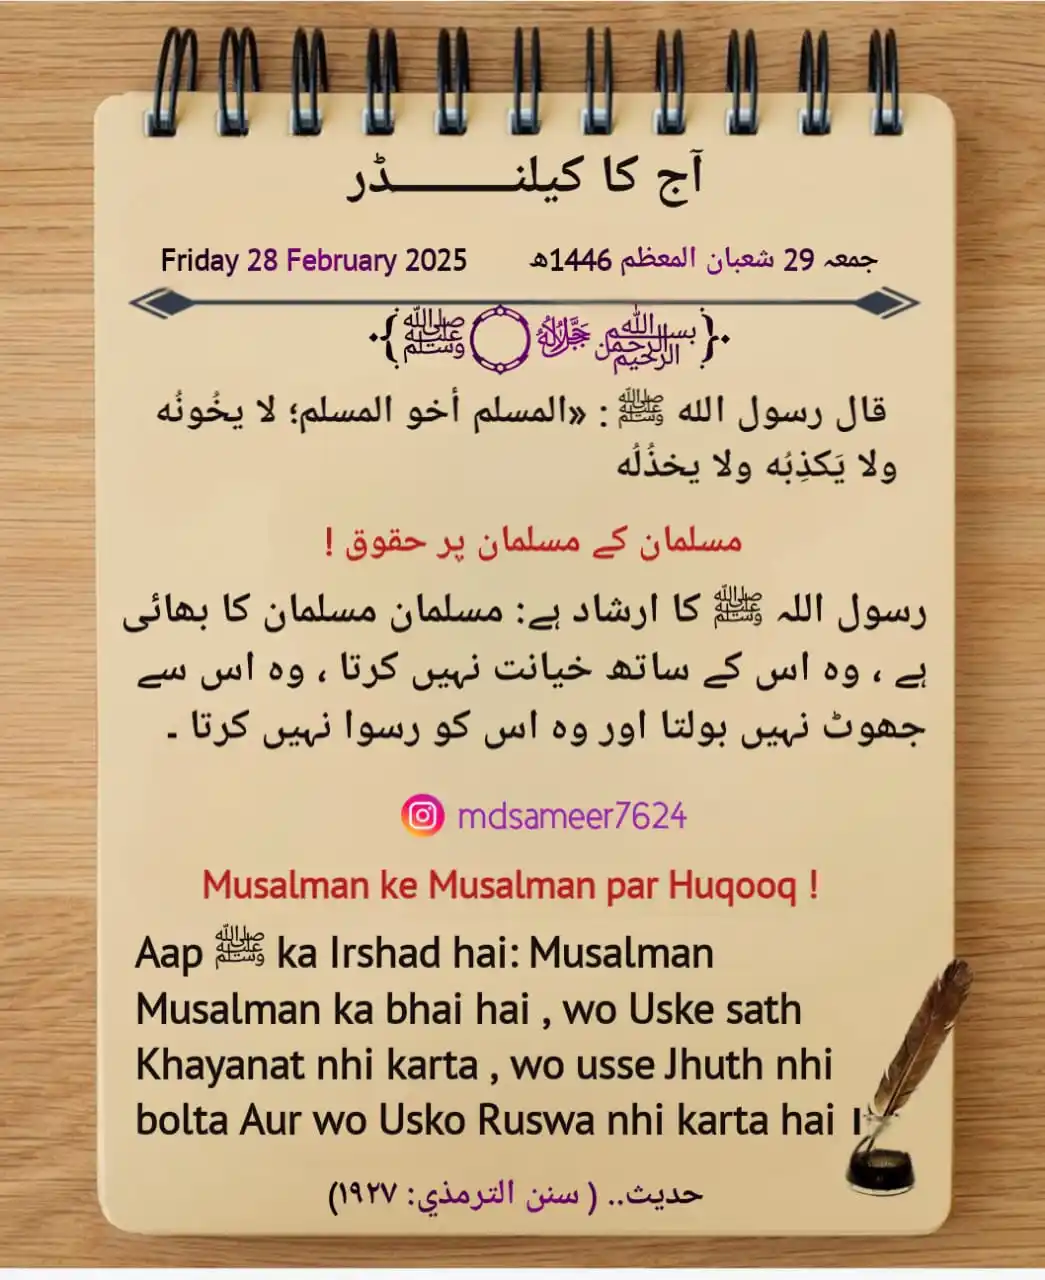 آج کا کیلنـــــــــــڈر
Friday 28 February 2025 جمعہ 29 شعبان المعظم 1446ھ
﴿﷽ ﷻ ﷺ﴾
قال رسول الله ﷺ : «المسلم أخو المسلم؛ لا يخُونُه
ولا يَكذِبُه ولا يخذُلُه
مسلمان کے مسلمان پر حقوق !
رسول اللہ ﷺ کا ارشاد ہے: مسلمان مسلمان کا بھائی
ہے ، وہ اس کے ساتھ خیانت نہیں کرتا ، وہ اس سے
جھوٹ نہیں بولتا اور وہ اس کو رسوا نہیں کرتا ۔
mdsameer7624
Musalman ke Musalman par Huqooq !
Aap ﷺ ka Irshad hai: Musalman
Musalman ka bhai hai , wo Uske sath
Khayanat nhi karta , wo usse Jhuth nhi
bolta Aur wo Usko Ruswa nhi karta hai ।
حدیث.. ( سنن الترمذي: ١٩٢٧)